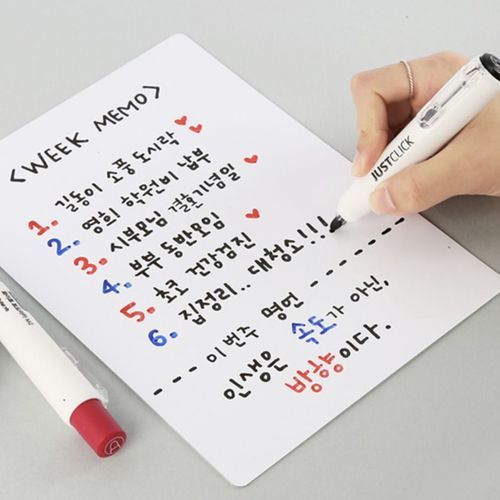 <WEEK MEMO>
1. 길동이 소풍 도시락
2. 영희 학원비 납부
3. 시부모님 결혼기념일
4. 부부 동반모임
5. 초코 건강검진
6. 집정리.. 대청소!!!
--- 이번주 명언 ------
인생은 속도가 아닌,
방향이다.
JUSTCLICK